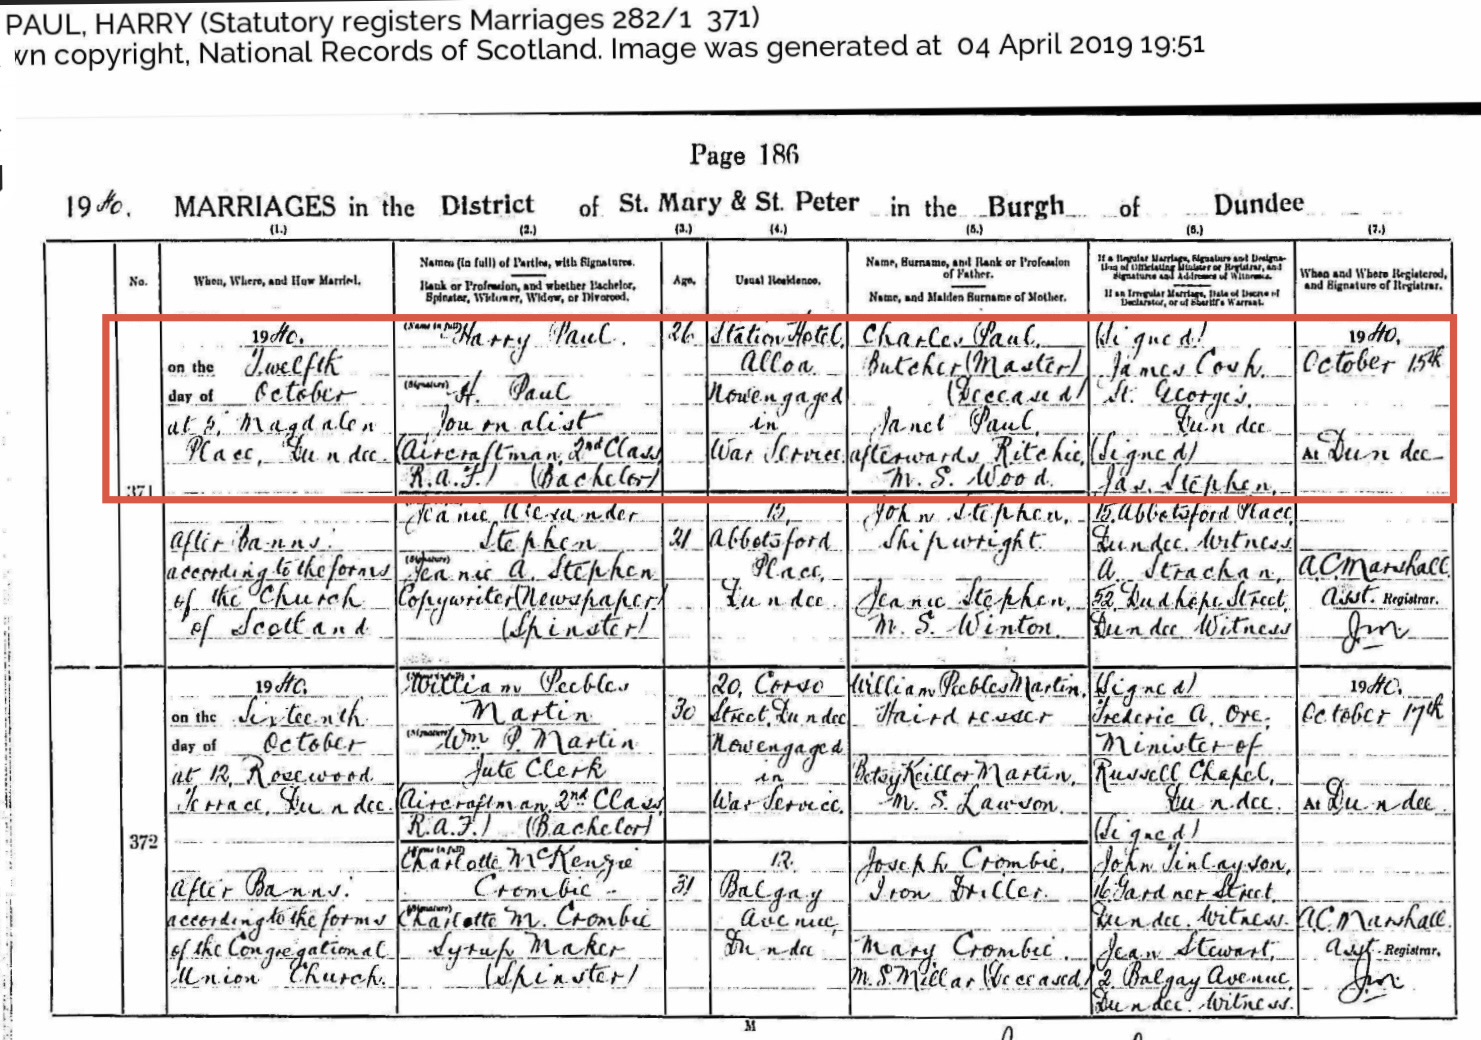 PAUL, HARRY (Statutory registers Marriages 282/1 371)
wn copyright, National Records of Scotland. Image was generated at 04 April 2019 19:51
Page 186
1940. MARRIAGES in the District of St. Mary & St. Peter in the Burgh of Dundee
(1.) (2.) (3.) (4.) (5.) (6.) (7.)
No.
When, Where, and How Married.
Names (in full) of Parties, with Signatures.
Rank or Profession, and whether Bachelor,
Spinster, Widower, Widow, or Divorced.
Age.
Usual Residence.
Name, Surname, and Rank or Profession
of Father.
Name, and Maiden Surname of Mother.
If a Regular Marriage, Signature and Designa-
tion of Officiating Minister or Registrar, and
Signatures and Addresses of Witnesses.
If an Irregular Marriage, Date of Decree of
Declarator, or of Sheriff's Warrant.
When and Where Registered,
and Signature of Registrar.
371
1940.
on the Twelfth
day of October
at 5, Magdalen
Place, Dundee.
After Banns:
according to the forms
of the Church
of Scotland
(Name in full)
Harry Paul.
(Signature)
H. Paul
Journalist
(Aircraftman, 2nd Class
R.A.F.) (Bachelor)
26
Station Hotel,
Alloa
Now engaged
in
War Service.
Charles Paul,
Butcher (Master)
(Deceased)
Janet Paul,
afterwards Ritchie,
M.S. Wood.
(Signed)
James Cosh.
St. George's,
Dundee
(Signed)
Jas. Stephen,
1940,
October 15th
At Dundee
Jeanie Alexander
Stephen
(Signature)
Jeanie A. Stephen
Copywriter (Newspaper)
(Spinster)
21
15,
Abbotsford
Place,
Dundee
John Stephen,
Shipwright
Jeanie Stephen,
M.S. Winton.
15, Abbotsford Place,
Dundee. Witness
A. Strachan,
52, Dudhope Street,
Dundee Witness
A.C. Marshall.
Asst. Registrar.
372
1940.
on the Sixteenth
day of October
at 12, Rosewood
Terrace, Dundee.
After Banns:
according to the forms
of the Congregational
Union Church.
William Peebles
Martin
(Signature)
Wm P. Martin
Jute Clerk
(Aircraftman, 2nd Class,
R.A.F.) (Bachelor)
30
20, Corso
Street, Dundee
Now engaged
in
War Service.
William Peebles Martin,
Hairdresser
Betsy Keillor Martin,
M.S. Lawson.
(Signed)
Frederic A.
Minister of
Russell Chapel,
Dundee.
(Signed)
1940.
October 17th
At Dundee.
(Name in full)
Charlotte McKenzie
Crombie
(Signature)
Charlotte M. Crombie
Syrup Maker
(Spinster)
31
12,
Balgay
Avenue,
Dundee
Joseph Crombie,
Iron Driller.
Mary Crombie.
M.S. Millar (Deceased)
John Finlayson,
16, Gardner Street,
Dundee. Witness.
Jean Stewart,
2, Balgay Avenue,
Dundee. Witness.
A.C. Marshall.
Asst. Registrar.
M